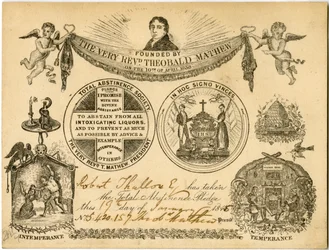 FOUNDED BY
THE VERY REVD THEOBALD MATHEW
ON THE 10TH OF APRIL 1838
TOTAL ABSTINENCE SOCIETY
PLEDGE
I PROMISE
WITH THE
DIVINE
ASSISTANCE
TO ABSTAIN FROM ALL
INTOXICATING LIQUORS,
AND TO PREVENT AS MUCH
AS POSSIBLE BY ADVICE &
EXAMPLE
INTEMPERANCE
IN
OTHERS
THE VERY REVD T. MATHEW PRESIDENT
IN HOC SIGNO VINCES
has taken
the Total Abstinence Pledge
this day of
INTEMPERANCE
TEMPERANCE